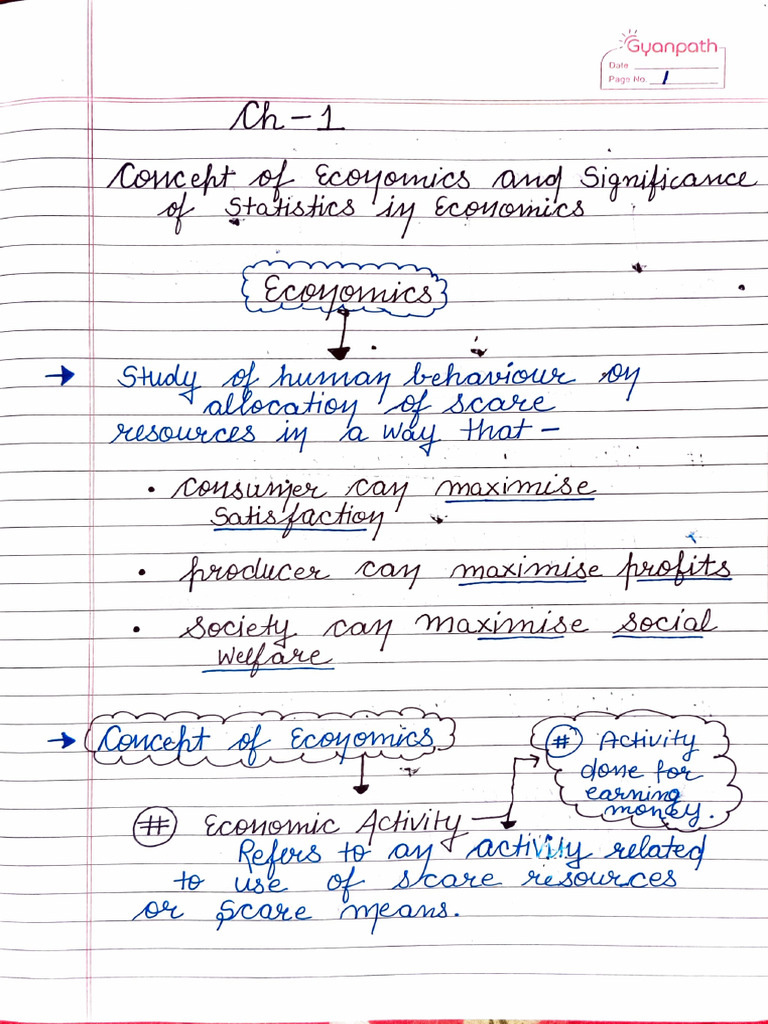 Gyanpath
Date
Page No. 1
Ch - 1
Concept of Economics and Significance
of Statistics in Economics
Economics
→ Study of human behaviour on
allocation of scare
resources in a way that -
• Consumer can maximise
Satisfaction
• producer can maximise profits
• society can maximise social
welfare
→ Concept of Economics
# Activity
done for
earning
money.
# Economic Activity
Refers to an activity related
to use of scare resources
or scare means.